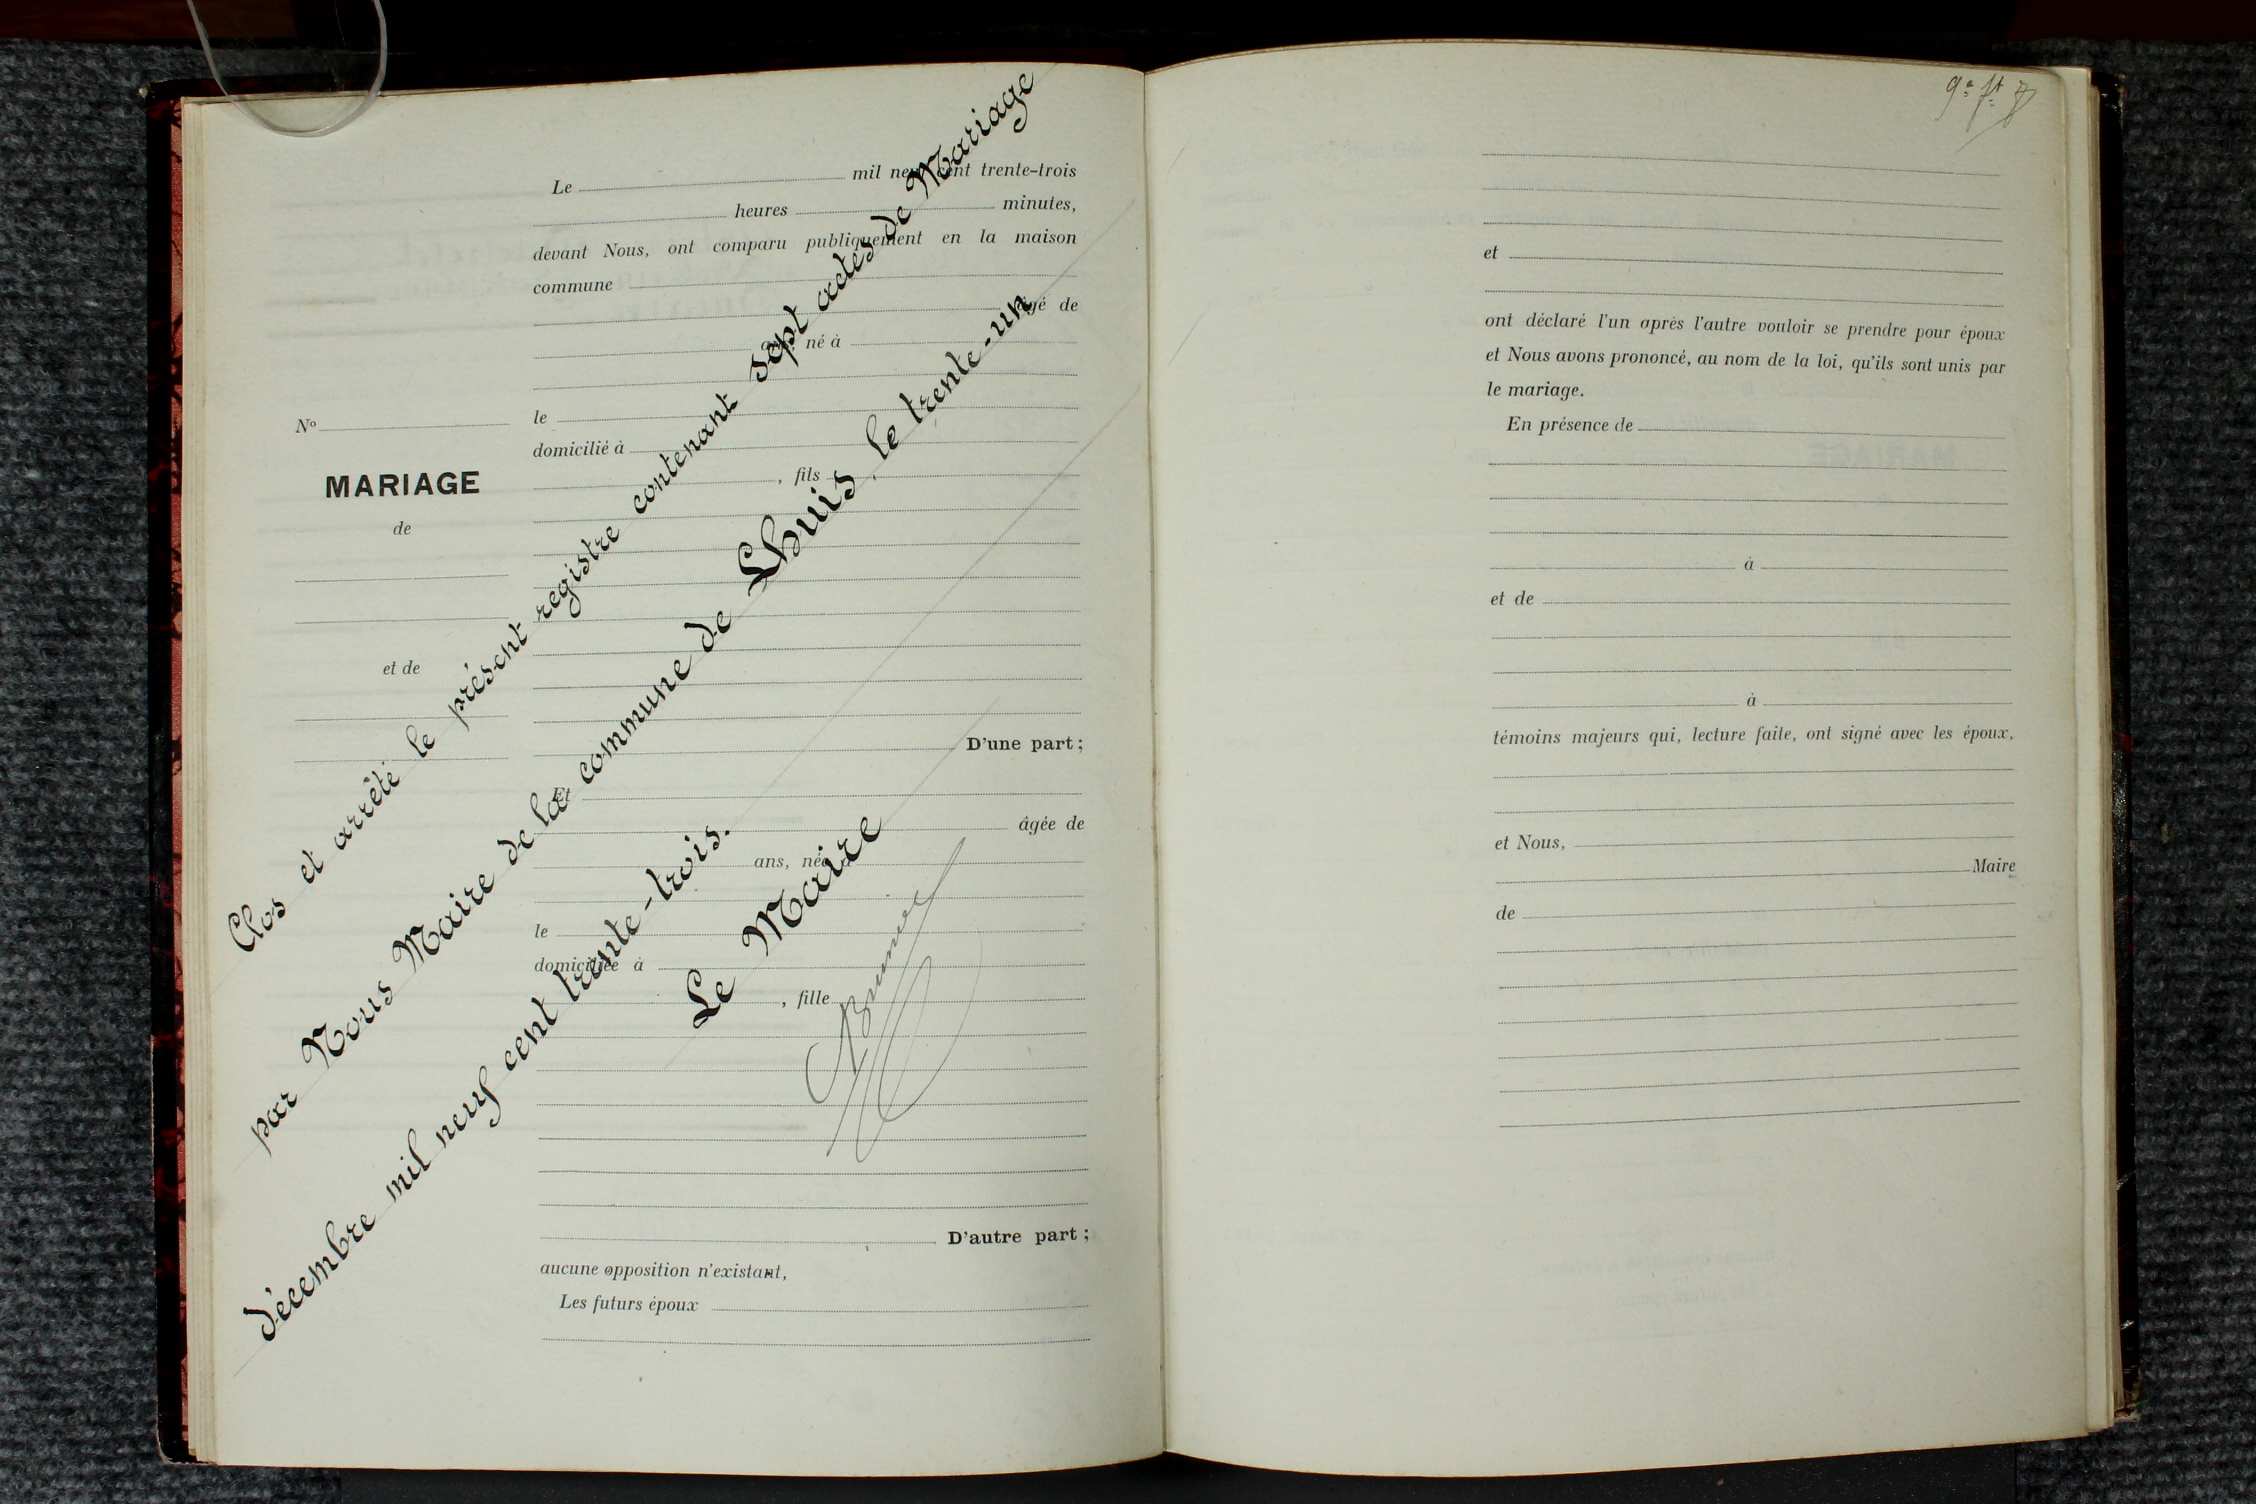 Le mil neuf cent trente-trois
heures minutes,
devant Nous, ont comparu publiquement en la maison
commune
âgé de
ans, né à
le
domicilié à
, fils
D'une part ;
Et
âgée de
ans, née à
le
domiciliée à
, fille
D'autre part ;
aucune opposition n'existant,
Les futurs époux
No
MARIAGE
de
et de
Clos et arrêté le présent registre contenant sept actes de Mariage
par Nous Maire de la commune de Lhuis, le trente-un
décembre mil neuf cent trente-trois.
Le Maire
et
ont déclaré l'un après l'autre vouloir se prendre pour époux
et Nous avons prononcé, au nom de la loi, qu'ils sont unis par
le mariage.
En présence de
à
et de
à
témoins majeurs qui, lecture faite, ont signé avec les époux,
et Nous,
Maire
de